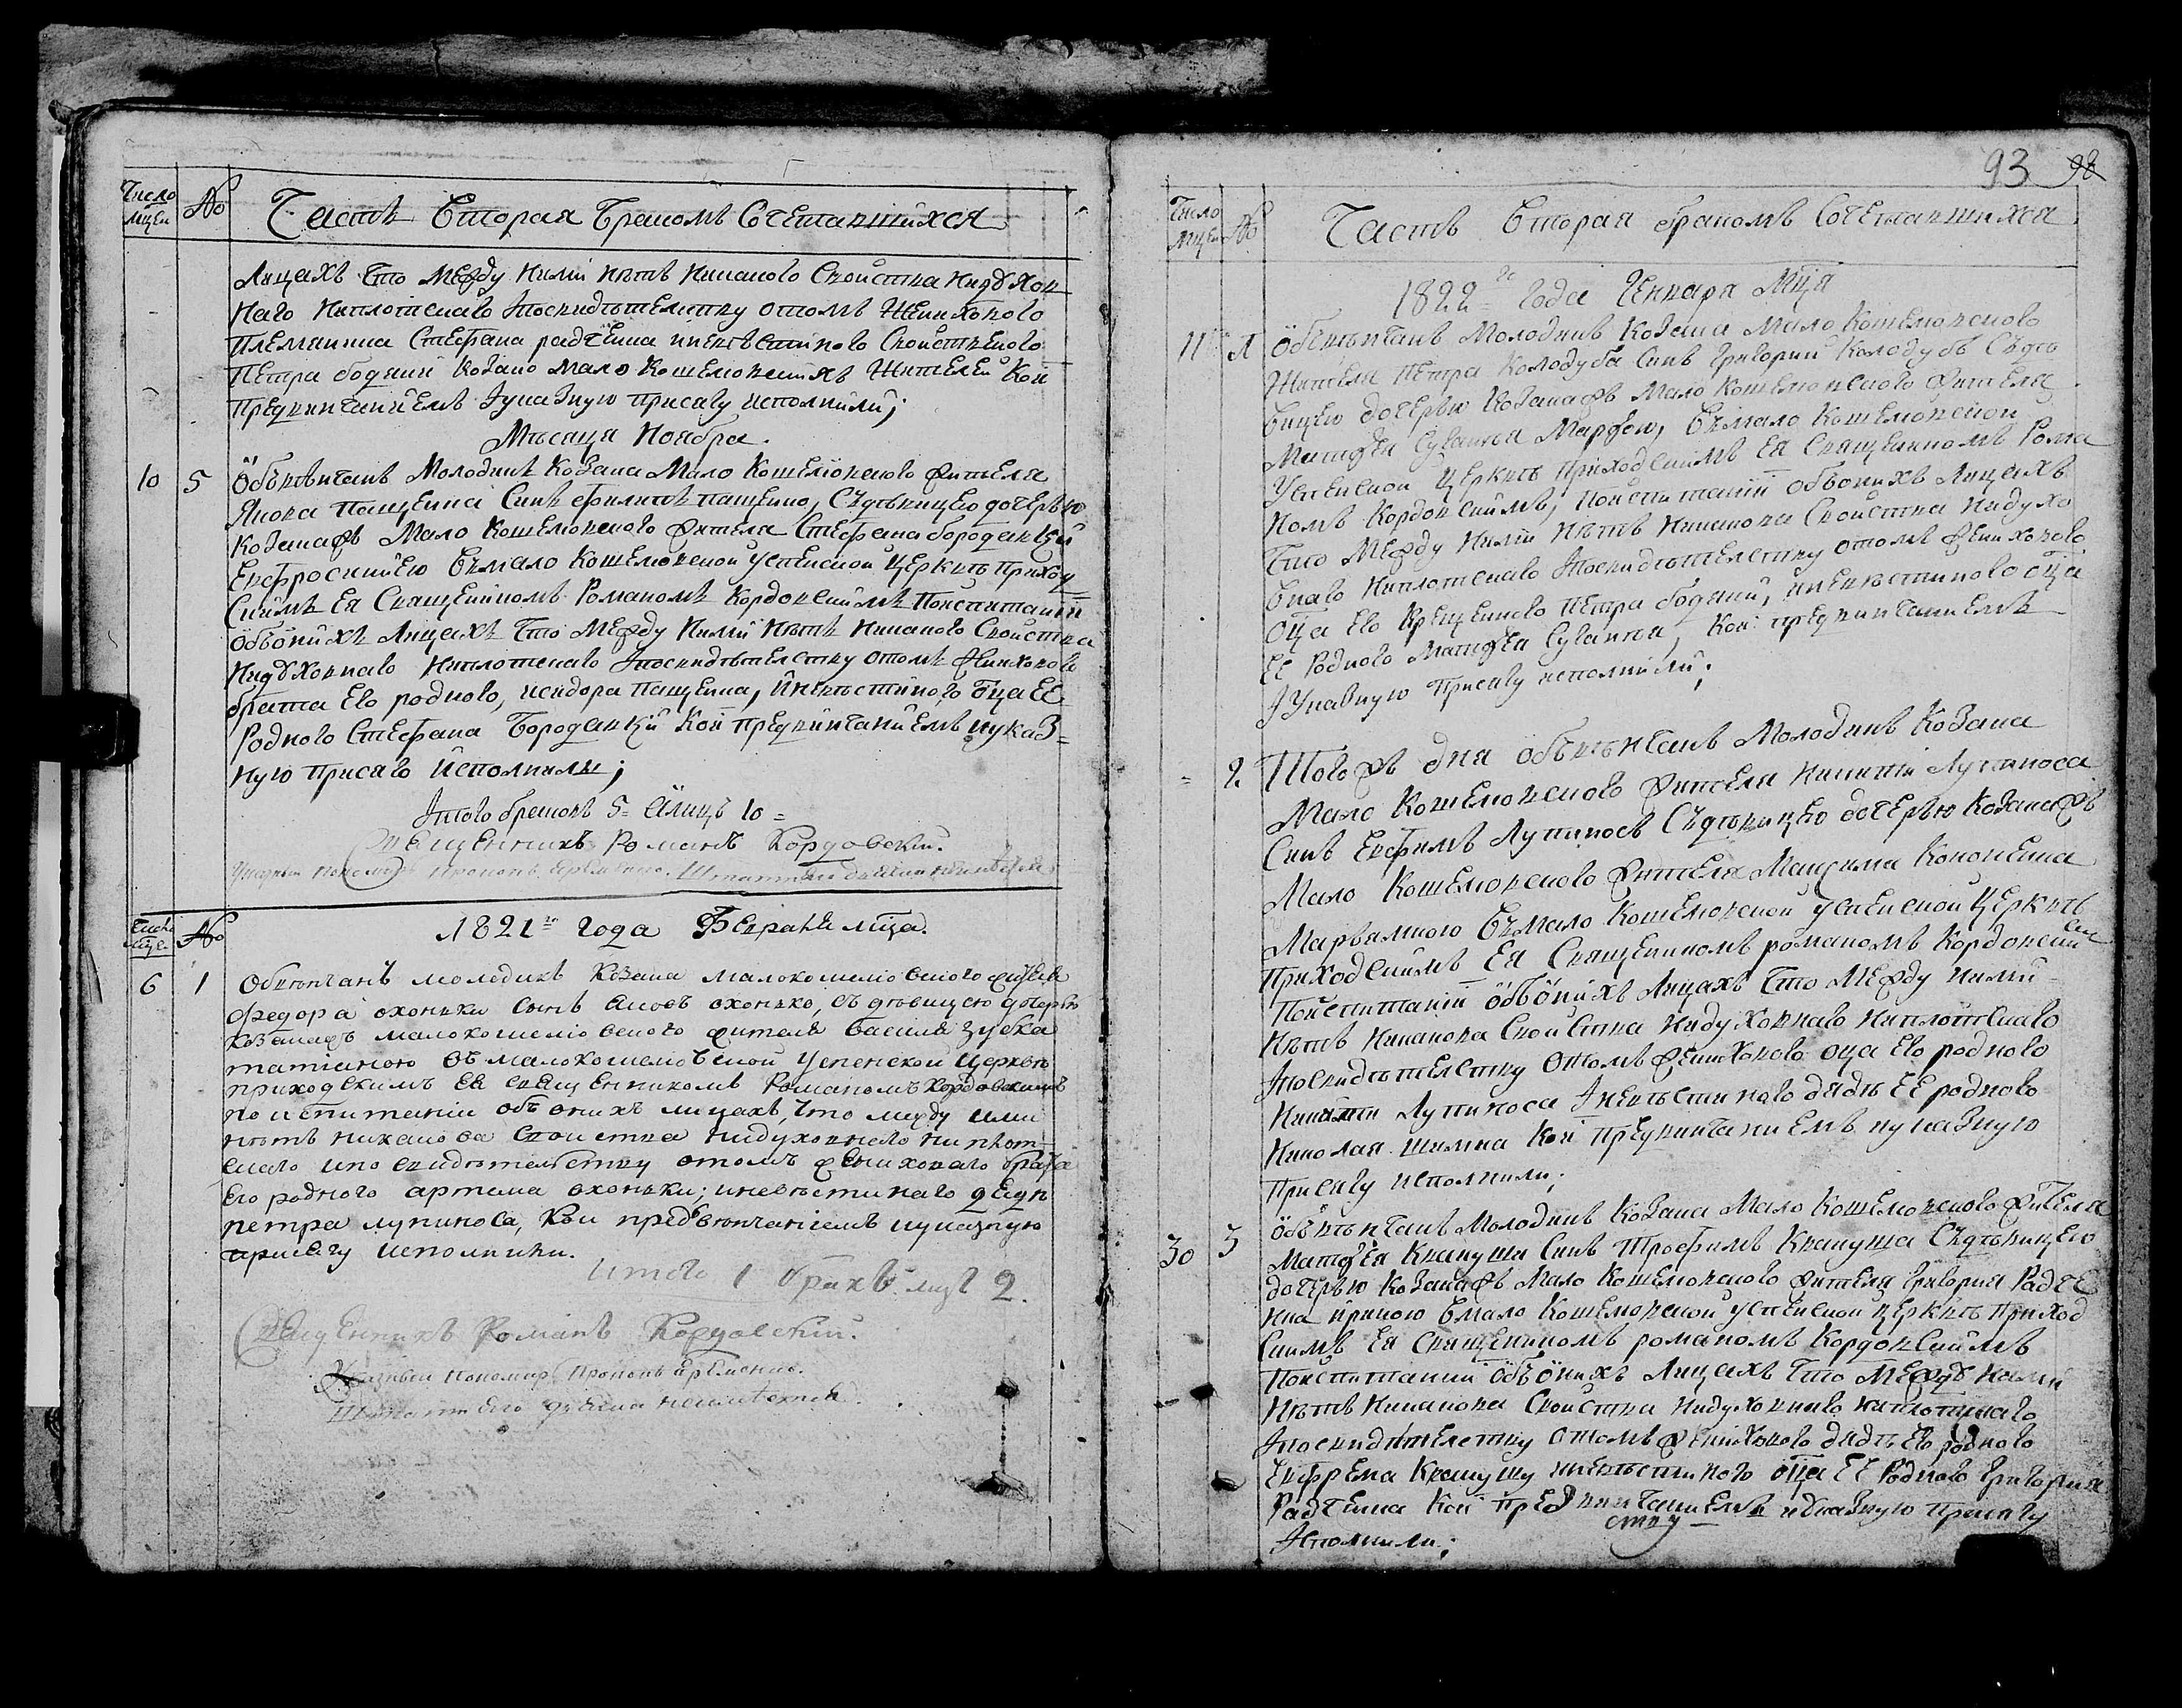 Число
мцеи
№
Часть Вторая Браком Сочетавшийхся
Лицахъ Что Между Ними нетъ никакого Свойства нидухов
наго ниплотскаго Ипосвидѣтелству отомъ Женихового
племянника Стефана радченка иневѣстиного Свойственого
Петра бодний козако мало кошелювскихъ жителей Кои
предвинчанийемъ Iуказную присягу исполнили;
Мѣсяца Ноября.
10 5 Обвѣнчанъ Молодикъ Козака Мало Кошелювского жителя
Якова пащенка Синъ филипъ пащенко, Съдѣвицею дочерью
Козакажъ Мало Кошелювского жителя Стефана бородавкий
Евфросинийею Въмало кошелювской успенской церквѣ приход
Скимъ Ея Священикомъ Романомъ Кордовскимъ Поиспитаний
Объонихъ Лицахъ Что Между Ними нетъ никакого Свойства
Нидуховнаго Ниплотскаго Ипосвидѣтелству отомъ женихового
брата Его родного, исидора Пащенка, Иневѣстиного отца ЕЕ
Родного Стефана Бородавкий Кои предвинчанийемъ иуказ=
ную присяго Исполнили;
Итого браковъ 5= алицъ 10=
Священникъ Романъ Кордовский.
пономарь Прокопъ Еременко.
Число
мце
№
1821го года Февраля мца.
6 1 Обвѣнчанъ молодикъ козака малокошелювского жителя
федора охонька сынъ яковъ охонько, съ дѣвицею дочерью
козакажъ малокошелювского жителя василия зубка
татияною въ малокошелювской Успенской Церквѣ
приходскимъ ея священникомъ Романомъ Кордовскимъ
по испитании объ онихъ лицахъ, что между ими
нѣтъ никакова своиства нидуховнаго ниплот=
скаго ипо свидѣтельству отомъ жениховаго брата
Его родного артема охоньки; иневѣстинаго дяди
петра лупиноса, Кои предъвѣнчаниемъ иуказную
присягу исполнили.
Итого 1 бракъ лицъ 2.
Священникъ Романъ Кордовский.
пономарь Прокопъ Еременко.
93 98
Число
мцеи
№
Часть Вторая браком Сочетавшихся
1822го Года Генваря Мца
11 1 Обвѣнчанъ Молодикъ Козака Мало Кошелювского
Жителя Петра Колодуба Синъ Григорий Колодубъ Съдѣ
вицею дочерью Козакажъ Мало Кошелювского жителя
Матфея Марфою, Въмало Кошелювской
Успенской Церквѣ Приходскимъ Ея Священикомъ Рома
номъ Кордовскимъ, Поиспитаний объонихъ Лицахъ
Что Между Ними Нетъ Никакова Свойства Нидухо
Внаго Ниплотскаго Ипосвидѣтелству отомъ женихового
Отца Его Крещеного Петра бодний, иневѣстиного отца
ЕЕ Родного Матфея Кои предвинчаниемъ
IУказную Присягу исполнили;
= 2 Тогожъ дня обвѣнчанъ Молодикъ Козака
Мало Кошелювского жителя Никити Лупиноса
Синъ Евфимъ Лупиносъ Съдѣвицею дочерью Козакажъ
Мало Кошелювского жителя Максима Кононенка
Марвяною Въмало Кошелювской успенской Церквѣ
Приходскимъ Ея Священикомъ романомъ Кордовским
Поиспитаний объонихъ Лицахъ Что Между ними
Нетъ Никакова Свойства Нидуховнаго Ниплотскаго
Ипосвидѣтелству Отомъ женихового оца Его родного
Никити Лупиноса Iневѣстиного дядѣ ЕЕ родного
Николая Шимка Кои предвинчаниемъ иуказную
Присягу исполнили;
30 3 Обвѣнчанъ Молодикъ Козака Мало Кошелювского жителя
Матфея Квапуши Синъ Трофимъ Квапуша Съдѣвицею
дочерью Козакажъ Мало Кошелювского жителя Григория Радче
нка ириною Вмало Кошелювской успенской церквѣ Приход
Скимъ Ея Священикомъ романомъ Кордовскимъ
Поиспитаний Объонихъ Лицахъ Что Между Ними
Нетъ Никакова Свойства Нидуховнаго ниплотскаго
Ипосвидѣтелству отомъ женихового дядѣ Его родного
Евфрема Квапушу иневѣстиного отца ЕЕ Родного Григория
Радченка Кои предвинчаниемъ иуказную Присягу
Исполнили;